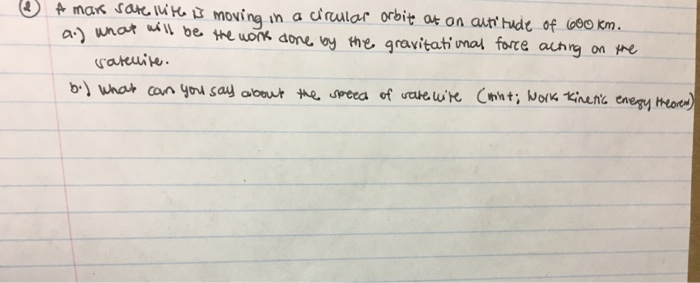 ② A mars satellite is moving in a circular orbit at an altitude of 600 km.
a.) what will be the work done by the gravitational force acting on the
satellite.
b.) what can you say about the speed of satellite (hint; Work kinetic energy theorem)